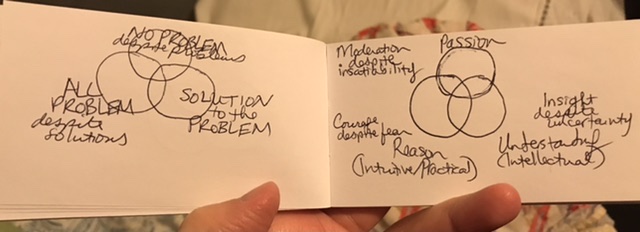 NO PROBLEM
despite problems
ALL
PROBLEM
despite
solutions
SOLUTION
to the
PROBLEM
Moderation
despite
insatiability
Passion
Courage
despite fear
Reason
(Intuitive/Practical)
Insight
despite
uncertainty
Understanding
(Intellectual)